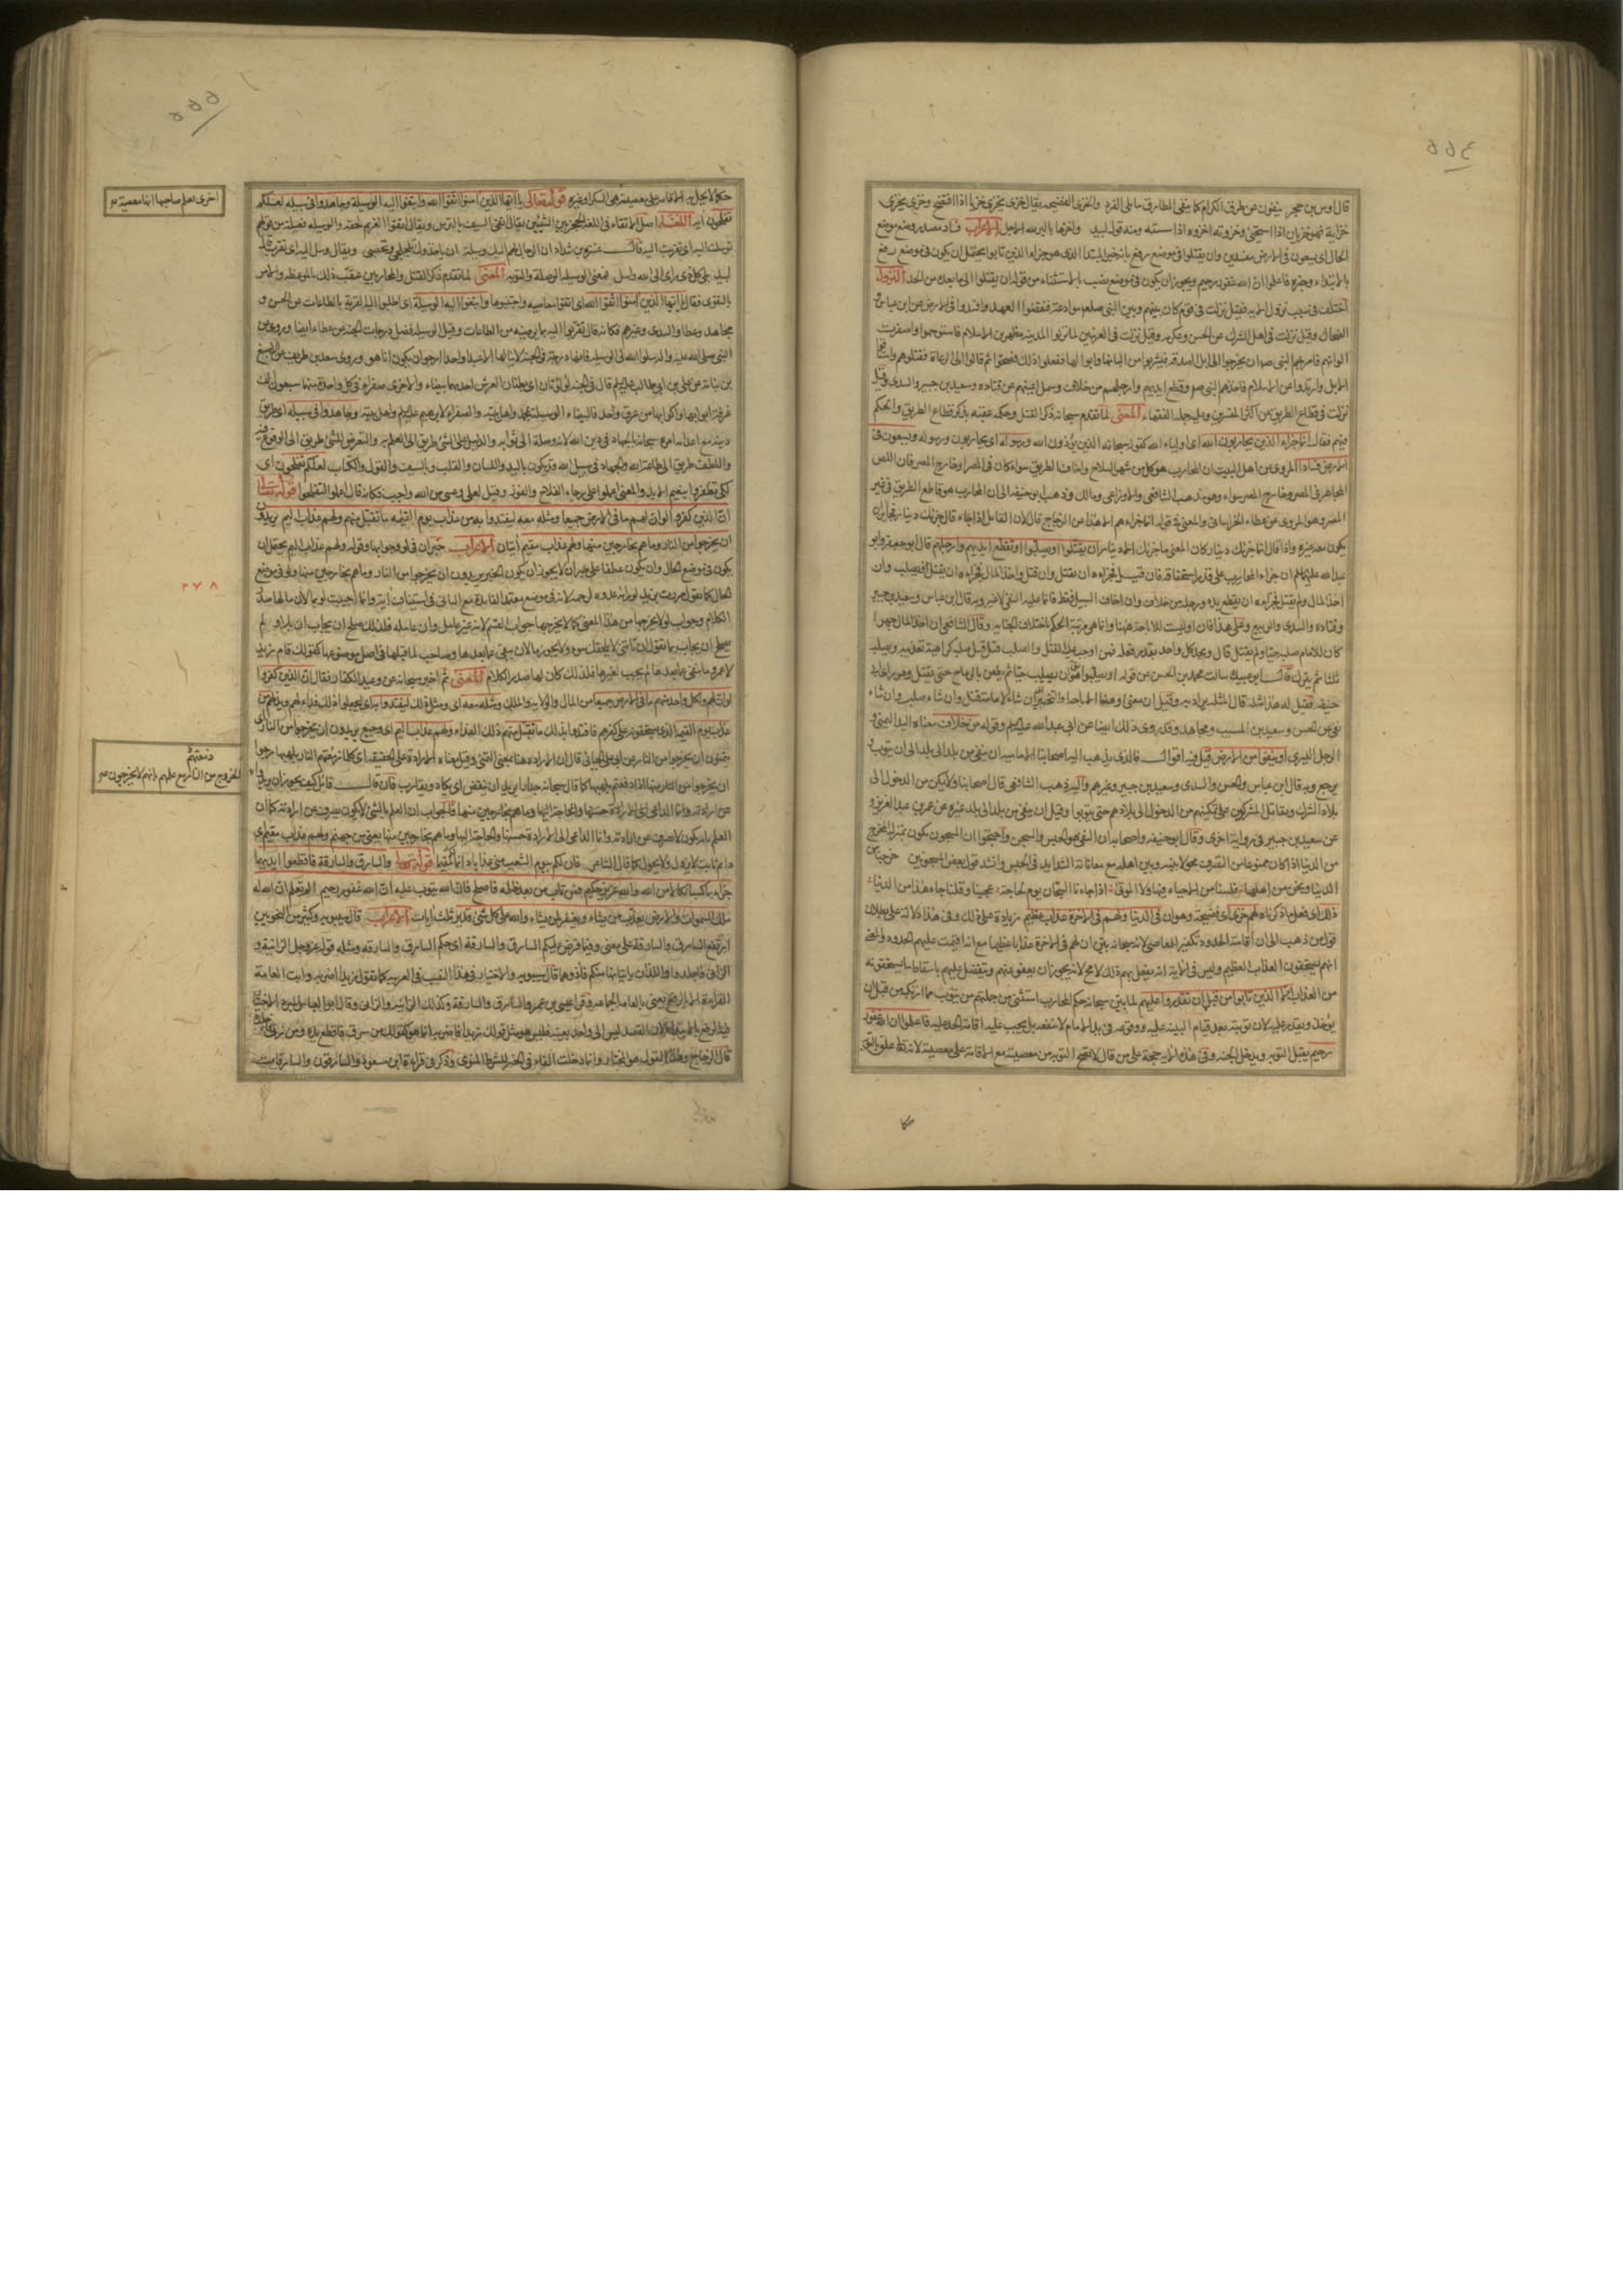 قال اوس بن حجر ينفون عن طرق الكرام كما ينفى المطارق ما يلى القرد والخزى الفضيحة يقال خزى يخزى خزيا اذا افتضح وخزى يخزى
خزاية فهو خزيان اذا استحيى وخزوته اخزوه اذا سسته ومنه قول لبيد واخزها بالبر لله الاجل الاعراب فسادا مصدر وضع موضع
الحال اى يسعون فى الارض مفسدين وان يقتلوا فى موضع رفع بانه خبر المبتدا الذى هو جزاء الذين تابوا يحتمل ان يكون فى موضع رفع
بالابتداء وخبره فاعلموا ان الله غفور رحيم ويجوز ان يكون فى موضع نصب بالاستثناء من قوله ان يقتلوا الى ما بعده من الحد النزول
اختلف فى سبب نزول الاية فقيل نزلت فى قوم كان بينهم وبين النبى صلعم موادعة فنقضوا العهد وافسدوا فى الارض عن ابن عباس و
الضحاك وقيل نزلت فى اهل الشرك عن الحسن وعكرمه وقيل نزلت فى العرنيين لما نزلوا المدينه مظهرين الاسلام فاستوخموا واصفرت
الوانهم فامرهم النبى ص ان يخرجوا الى ابل الصدقه فيشربوا من البانها وابوالها ففعلوا ذلك فصحوا ثم مالوا الى الرعاة فقتلوهم واستاقوا
الابل وارتدوا عن الاسلام فاخذهم النبى ص وقطع ايديهم وارجلهم من خلاف وسمل اعينهم عن قتاده وسعيد بن جبير والسدى وقيل
نزلت فى قطاع الطريق عن اكثر المفسرين وعليه جل الفقهاء المعنى لما تقدم سبحانه ذكر القتل وحكمه عقبه بذكر قطاع الطريق والحكم
فيهم فقال انما جزاء الذين يحاربون الله اى اولياء الله كقوله سبحانه الذين يؤذون الله ورسوله اى يحاربون رسوله ويسعون فى
الارض فسادا المروى عن اهل البيت ان المحارب هو كل من شهر السلاح واخاف الطريق سواء كان فى المصر او خارج المصر فان اللص
المجاهر فى المصر وخارج المصر سواء وهو مذهب الشافعى والاوزاعى ومالك وذهب ابو حنيفه الى ان المحارب هو قاطع الطريق فى غير
المصر وهو المروى عن عطاء الخراسانى والمعنى فى قوله انما جزاءهم
يكون معه غيره واذا قال انما جزاؤك دينار كان المعنى ما جزاؤك الا دينار ان يقتلوا او يصلبوا او تقطع ايديهم وارجلهم قال ابو جعفر وابو
عبد الله عليهما السلم ان جزاء المحارب على قدر استحقاقه فان قتل فجزاءه ان يقتل وان قتل واخذ المال فجزاءه ان يقتل ويصلب وان
اخذ المال ولم يقتل فجزاءه ان يقطع يده ورجله من خلاف وان اخاف السبيل فقط فانما عليه النفى لا غير وبه قال ابن عباس وسعيد بن جبير
وقتاده والسدى والربيع وعلى هذا فان او ليست للاباحة ههنا وانما هى مرتبة الحكم باختلاف الجنايه وقال الشافعى ان اخذ المال جهرا
كان للامام صلبه حيا ولم يقتل قال ويحد كل واحد بقدر فعله فمن وجب عليه القتل والصلب قتل قبل صلبه كراهية تعذيبه ويصلب
ثلثا ثم ينزل قال ابو عبيد سالت محمد بن الحسن عن قوله او يصلبوا فقال هو ان يصلب حيا ثم يطعن بالرماح حتى يقتل وهو راى ابى
حنيفه فقيل له هذا مثلة قال المثلة يراد به وقيل ان معنى او ههنا الاباحة والتخيير اى ان شاء الامام قتل وان شاء صلب وان شاء
نفى عن الحسن وسعيد بن المسيب ومجاهد وقد روى ذلك ايضا عن ابى عبد الله عليه السلم وقوله من خلاف معناه اليد اليمنى و
الرجل اليسرى او ينفوا من الارض قيل فيه اقوال فالذى يذهب اليه اصحابنا الاماميه ان ينفى من بلد الى بلد الى ان يتوب و
يرجع وبه قال ابن عباس والحسن والسدى وسعيد بن جبير وغيرهم واليه ذهب الشافعى قال اصحابنا ولا يمكن من الدخول الى
بلاد الشرك ويقاتل المشركون على تمكينهم من الدخول الى بلادهم حتى يتوبوا وقيل ان ينفى من بلد الى بلد غيره عن عمر بن عبد العزيز و
عن سعيد بن جبير فى رواية اخرى وقال ابو حنيفه واصحابه ان النفى هو الحبس والسجن واحتجوا ان المسجون يكون بمنزلة المخرج
من الدنيا اذا كان ممنوعا من التصرف محولا بينه وبين اهله مع معاناته الشدايد فى الحبس وانشد قول بعض المسجونين خرجنا من
الدنيا ونحن من اهلها فلسنا من الاحياء فيها ولا الموتى اذا جاءنا السجان يوما لحاجة عجبنا وقلنا جاء هذا من الدنيا
ذلك اى فعل ما ذكرناه لهم خزى اى فضيحة وهوان فى الدنيا ولهم فى الاخرة عذاب عظيم زيادة على ذلك وفى هذا دلالة على بطلان
قول من ذهب الى ان اقامة الحدود تكفير المعاصى لانه سبحانه بين ان لهم فى الاخرة عذابا عظيما مع انه اقيمت عليهم الحدود والمعنى
انهم يستحقون العذاب العظيم وليس فى الاية انه يفعل بهم ذلك لا محاله لانه يجوز ان يعفو عنهم ويتفضل عليهم باسقاط ما يستحقونه
من العذاب الا الذين تابوا من قبل ان تقدروا عليهم لما بين سبحانه حكم المحارب استثنى من جملتهم من يتوب مما ارتكبه من قبل ان
يؤخذ ويقدر عليه لان توبته بعد قيام البينه عليه ووقوعه فى يد الامام لا تنفعه بل يجب عليه اقامة الحد عليه فاعلموا ان الله غفور
رحيم يقبل التوبه ويدخل الجنه وفى هذه الاية حجة على من قال لا تصح التوبه من معصية مع الاقامة على معصية
اخرى يعلم صاحبها انها معصية
قوله تعالى يا ايها الذين امنوا اتقوا الله وابتغوا اليه الوسيلة وجاهدوا فى سبيله لعلكم
تفلحون اية اللغة اصل الاتقاء فى اللغة الحجز بين الشيئين يقال اتقى السيف بالترس ويقال اتقوا الغريم بحقه والوسيله فعيلة من قولهم
توسلت اليه اى تقربت اليه قال عنترة بن شداد ان الرجال لهم اليك وسيلة ان ياخذوك تكحلى وتخضبى ويقال وسل اليه اى تقرب قال
لبيد بلى كل ذى راى الى الله واسل فمعنى الوسيلة الوصلة والقربه المعنى لما تقدم ذكر القتل والمحاربين عقب ذلك بالموعظه والامر
بالتقوى فقال يا ايها الذين امنوا اتقوا الله اى اتقوا معاصيه واجتنبوها وابتغوا اليه الوسيلة اى اطلبوا اليه القربة بالطاعات عن الحسن و
مجاهد وعطا والسدى وغيرهم فكانه قال تقربوا اليه بما يرضيه من الطاعات وقيل الوسيله افضل درجات الجنه عن عطاء ايضا وروى عن
النبى صلى الله عليه واله سلوا الله لى الوسيله فانها درجة فى الجنة لا ينالها الا عبد واحد ارجو ان اكون انا هو وروى سعد بن طريف عن الاصبغ
بن نباته عن على بن ابى طالب عليه السلم قال فى الجنة لؤلؤتان الى بطنان العرش احديهما بيضاء والاخرى صفراء فى كل واحدة منهما سبعون الف
غرفة ابوابها واكوابها من عرق واحد فالبيضاء الوسيلة لمحمد واهل بيته والصفراء لابرهيم عليه السلم واهل بيته وجاهدوا فى سبيله اى طريق
دينه مع اعدائه امر سبحانه بالجهاد فى دين الله لانه وصلة الى ثوابه والدليل على الشئ طريق الى العلم به والتعرض للشئ طريق الى الوقوع فيه
واللطف طريق الى طاعة الله والجهاد فى سبيل الله قد يكون باليد واللسان والقلب وبالسيف والقول والكتاب لعلكم تفلحون اى
لكى تظفروا بنعيم الابد والمعنى اعملوا على رجاء الفلاح والفوز وقيل لعل وعسى من الله واجب فكانه قال اعملوا لتفلحوا قوله تعالى
ان الذين كفروا لو ان لهم ما فى الارض جميعا ومثله معه ليفتدوا به من عذاب يوم القيمه ما تقبل منهم ولهم عذاب اليم يريدون
ان يخرجوا من النار وما هم بخارجين منها ولهم عذاب مقيم ايتان الاعراب خبر ان فى لو وجوابها وقوله ولهم عذاب اليم يحتمل ان
يكون فى موضع الحال وان يكون عطفا على خبر ان لا يجوز ان يكون الخبر يريدون ان يخرجوا من النار وما هم بخارجين منها ولو فى موضع
الحال كما تقول مررت بزيد لو راه عدوه لرحمه لانه فى موضع معتمد الفايدة مع الثانى فى استيناف ايه وانما اجيبت لو بما لان ما لها صدر
الكلام وجواب لو لا يخرجها من هذا المعنى كما لا يخرجها جواب القسم لانه غير عامل وان عامله فلذلك صلح ان يجاب ان بلا ولم
يصلح ان يجاب بما
لا عمرو ما نفى ما بعدها ما لم يجب لغيرها فلذلك كان لها صدر الكلام المعنى ثم اخبر سبحانه عن وعيد الكفار فقال ان الذين كفروا
لو ان لهم اى لكل واحد منهم ما فى الارض جميعا من المال والولاية والملك ومثله معه اى ومثل ذلك ليفتدوا به اى ليجعلوا ذلك فداءهم وبدلهم من
عذاب يوم القيمه الذى يستحقونه على كفرهم فافتدوا بذلك ما تقبل منهم ذلك الفداء ولهم عذاب اليم اى وجيع يريدون ان يخرجوا من النار اى
يتمنون ان يخرجوا من النار عن ابى على الجبائى قال لان الارادة ههنا بمعنى التمنى وقيل معناه الارادة على الحقيقه اى كلما رفعتهم النار بلهبها رجوا
ان يخرجوا من النار
دفعتهم
الخروج من النار مع علمهم بانهم لا يخرجون
دائم ثابت لا يزول ولا يحول كما قال الشاعر فان لكم بيوم الشعب منى عذابا دائما لكم مقيما قوله تعالى والسارق والسارقة فاقطعوا ايديهما
جزاء بما كسبا نكالا من الله والله عزيز حكيم فمن تاب من بعد ظلمه واصلح فان الله يتوب عليه ان الله غفور رحيم الم تعلم ان الله له
ملك السموات والارض يعذب من يشاء ويغفر لمن يشاء والله على كل شئ قدير ثلث ايات الاعراب قال سيبويه وكثير من النحويين
ارتفع السارق والسارقة على معنى وفيما فرض عليكم السارق والسارقة اى حكم السارق والسارقه ومثله قوله عز وجل الزانية و
الزانى فاجلدوا واللذان ياتيانها منكم فاذوهما قال سيبويه والاختيار فى هذا النصب فى العربيه كما تقول زيدا اضربه وابت العامة
القراءة الا بالرفع يعنى بالعامه الجماعه وقرا عيسى بن عمر والسارق والسارقة وكذلك الزانية والزانى وقال ابو العباس المبرد الاختيار
فيه الرفع بالابتداء لان القصد ليس الى واحد بعينه فليس هو مثل قولك زيدا فاضربه انما هو كقولك من سرق فاقطع يده ومن زنى فاجلده
قال الزجاج وهذا القول هو المختار وانما دخلت الفاء فى الخبر للشرط المنوى وذكر فى قراءة ابن مسعود والسارقون والسارقات
٣٧٨